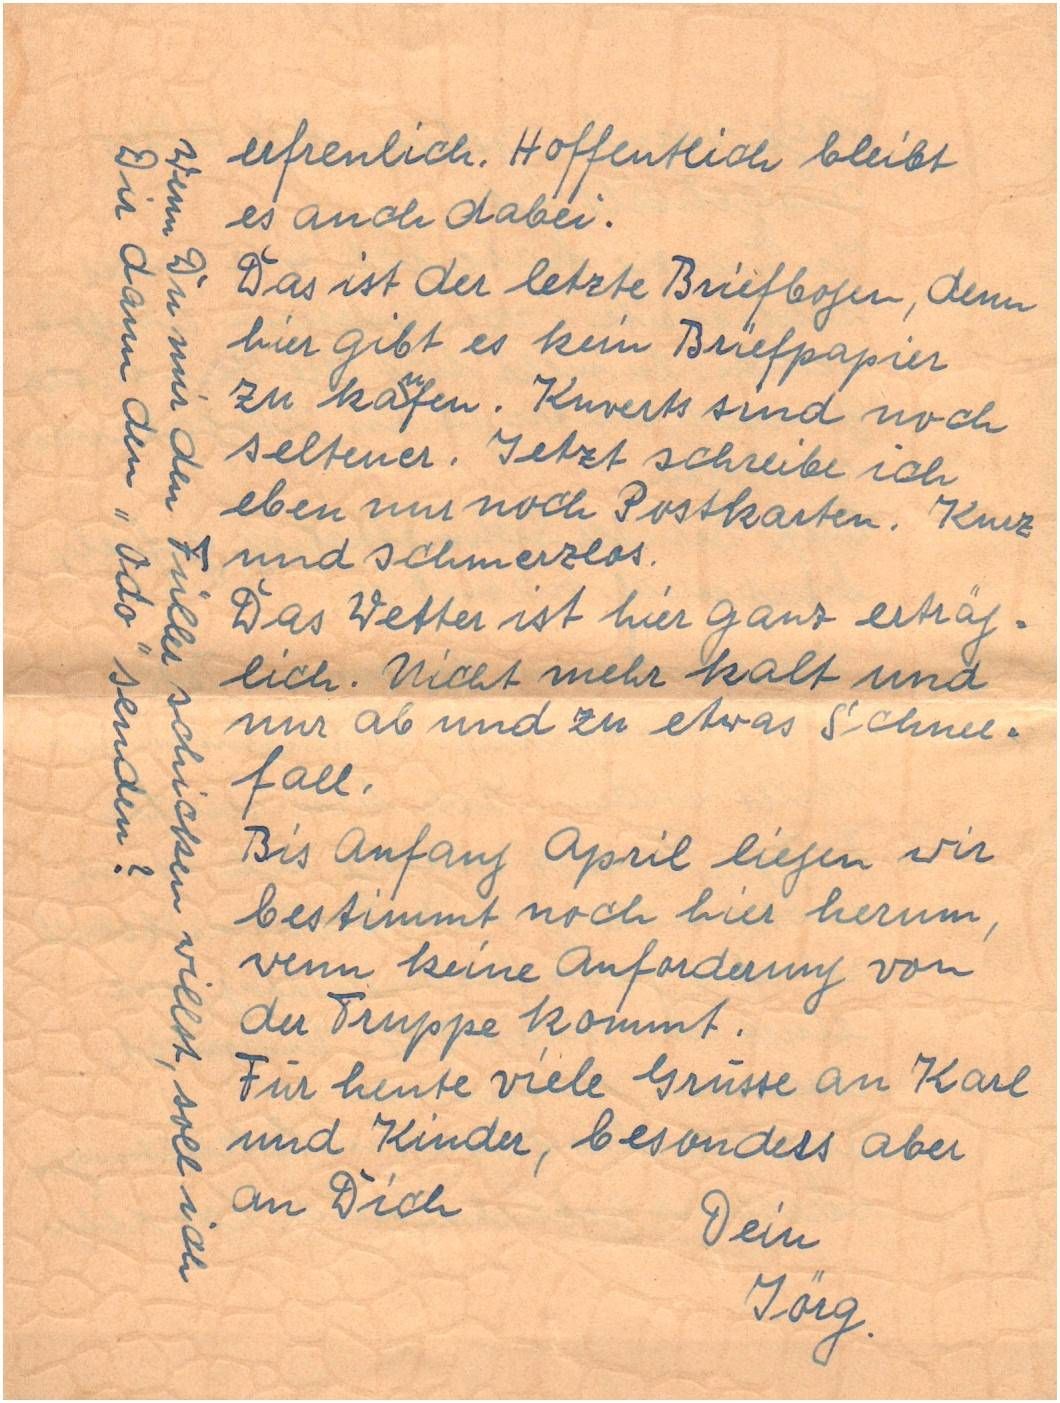 erfreulich. Hoffentlich bleibt
es auch dabei.
Das ist der letzte Briefbogen, denn
hier gibt es kein Briefpapier
zu kaufen. Kuverts sind noch
seltener. Jetzt schreibe ich
eben nur noch Postkarten. Kurz
und schmerzlos.
Das Wetter ist hier ganz erträg-
lich. Nicht mehr kalt und
nur ab und zu etwas Schnee-
fall.
Bis Anfang April liegen wir
bestimmt noch hier herum,
wenn keine Anforderung von
der Truppe kommt.
Für heute viele Grüsse an Karl
und Kinder, besonders aber
an Dich
Dein
Jörg.
Wenn Du mir den Füller schicken willst, soll ich
Dir dann den „Odo" senden?